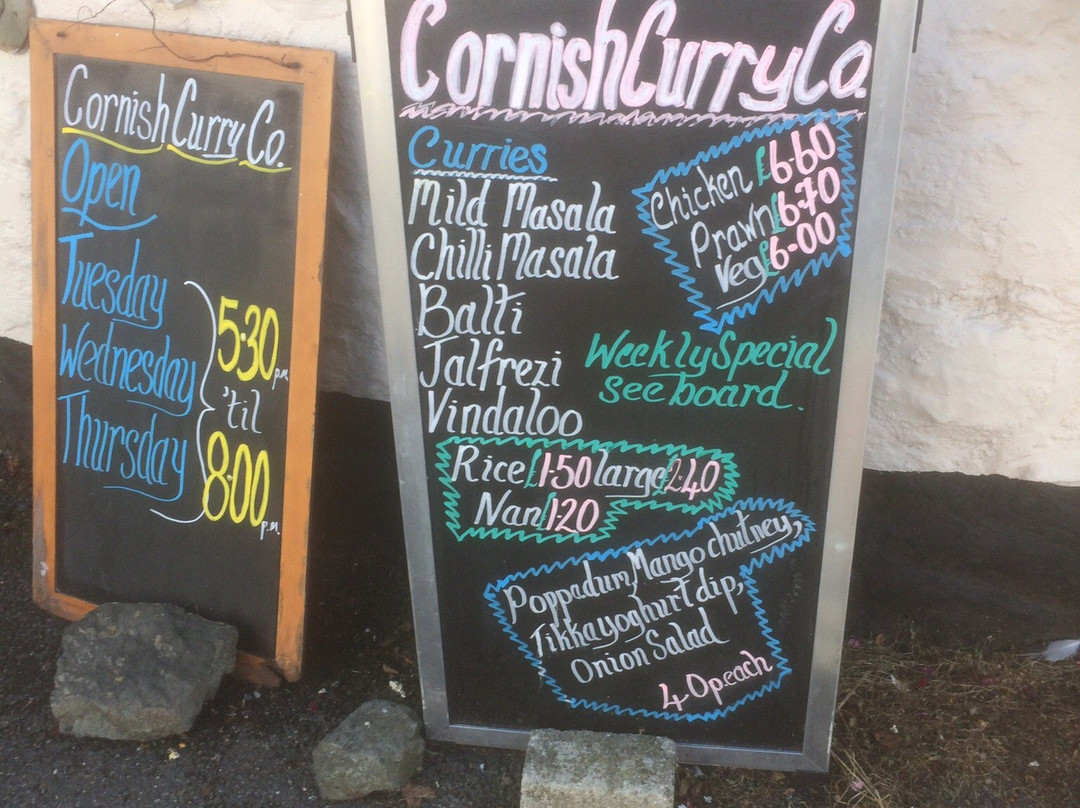 Cornish Curry Co.
Open
Tuesday
Wednesday
Thursday
5.30 p.m.
'til
8.00 p.m.
Cornish Curry Co.
Curries
Mild Masala
Chilli Masala
Balti
Jalfrezi
Vindaloo
Chicken £6.60
Prawn £6.70
Veg £6.00
Weekly Special
see board.
Rice £1.50 large £2.40
Nan £1.20
Poppadum, Mango chutney,
Tikka yoghurt dip,
Onion Salad
40p.each